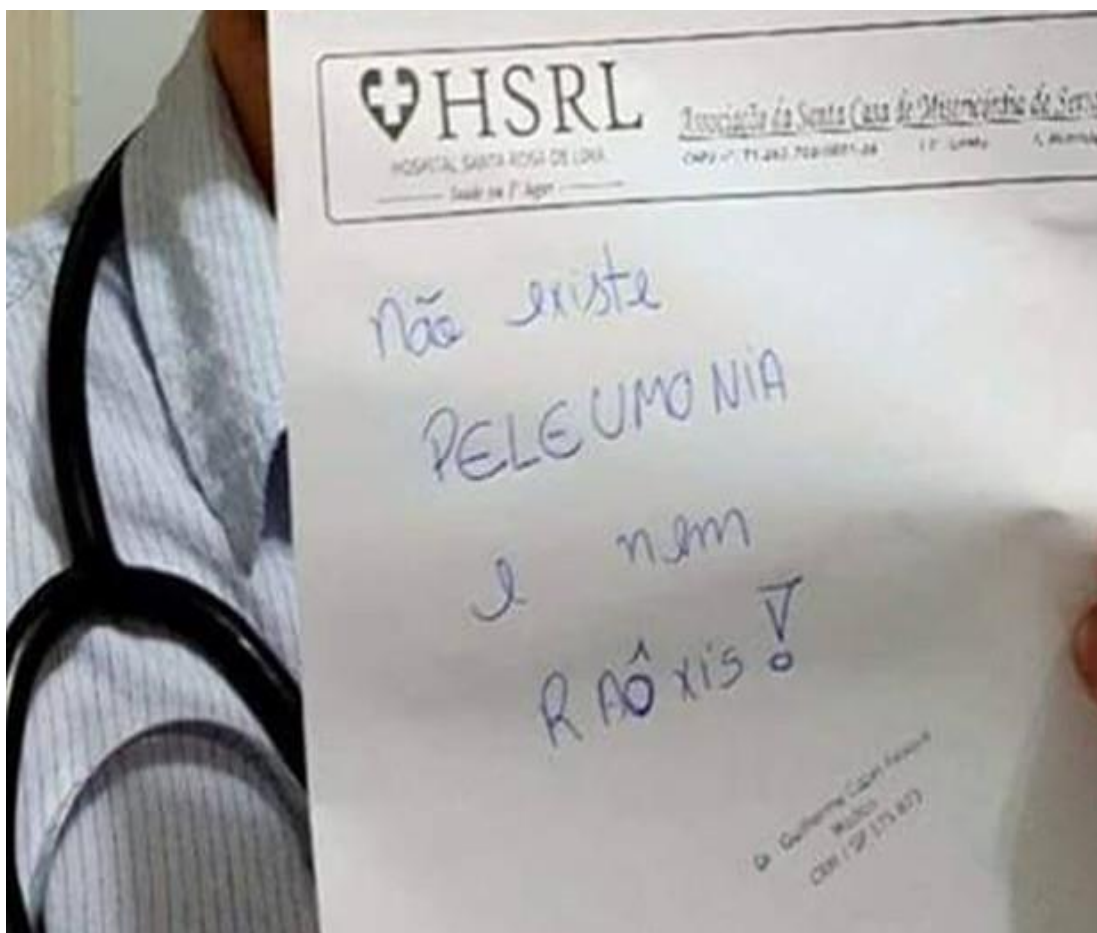 HSRL
HOSPITAL SANTA ROSA DE LIMA
Saúde em 1º lugar
Associação da Santa Casa de Misericórdia de
não existe
PELEUMONIA
e nem
RAÔXIS!
Dr. Guilherme
Médico